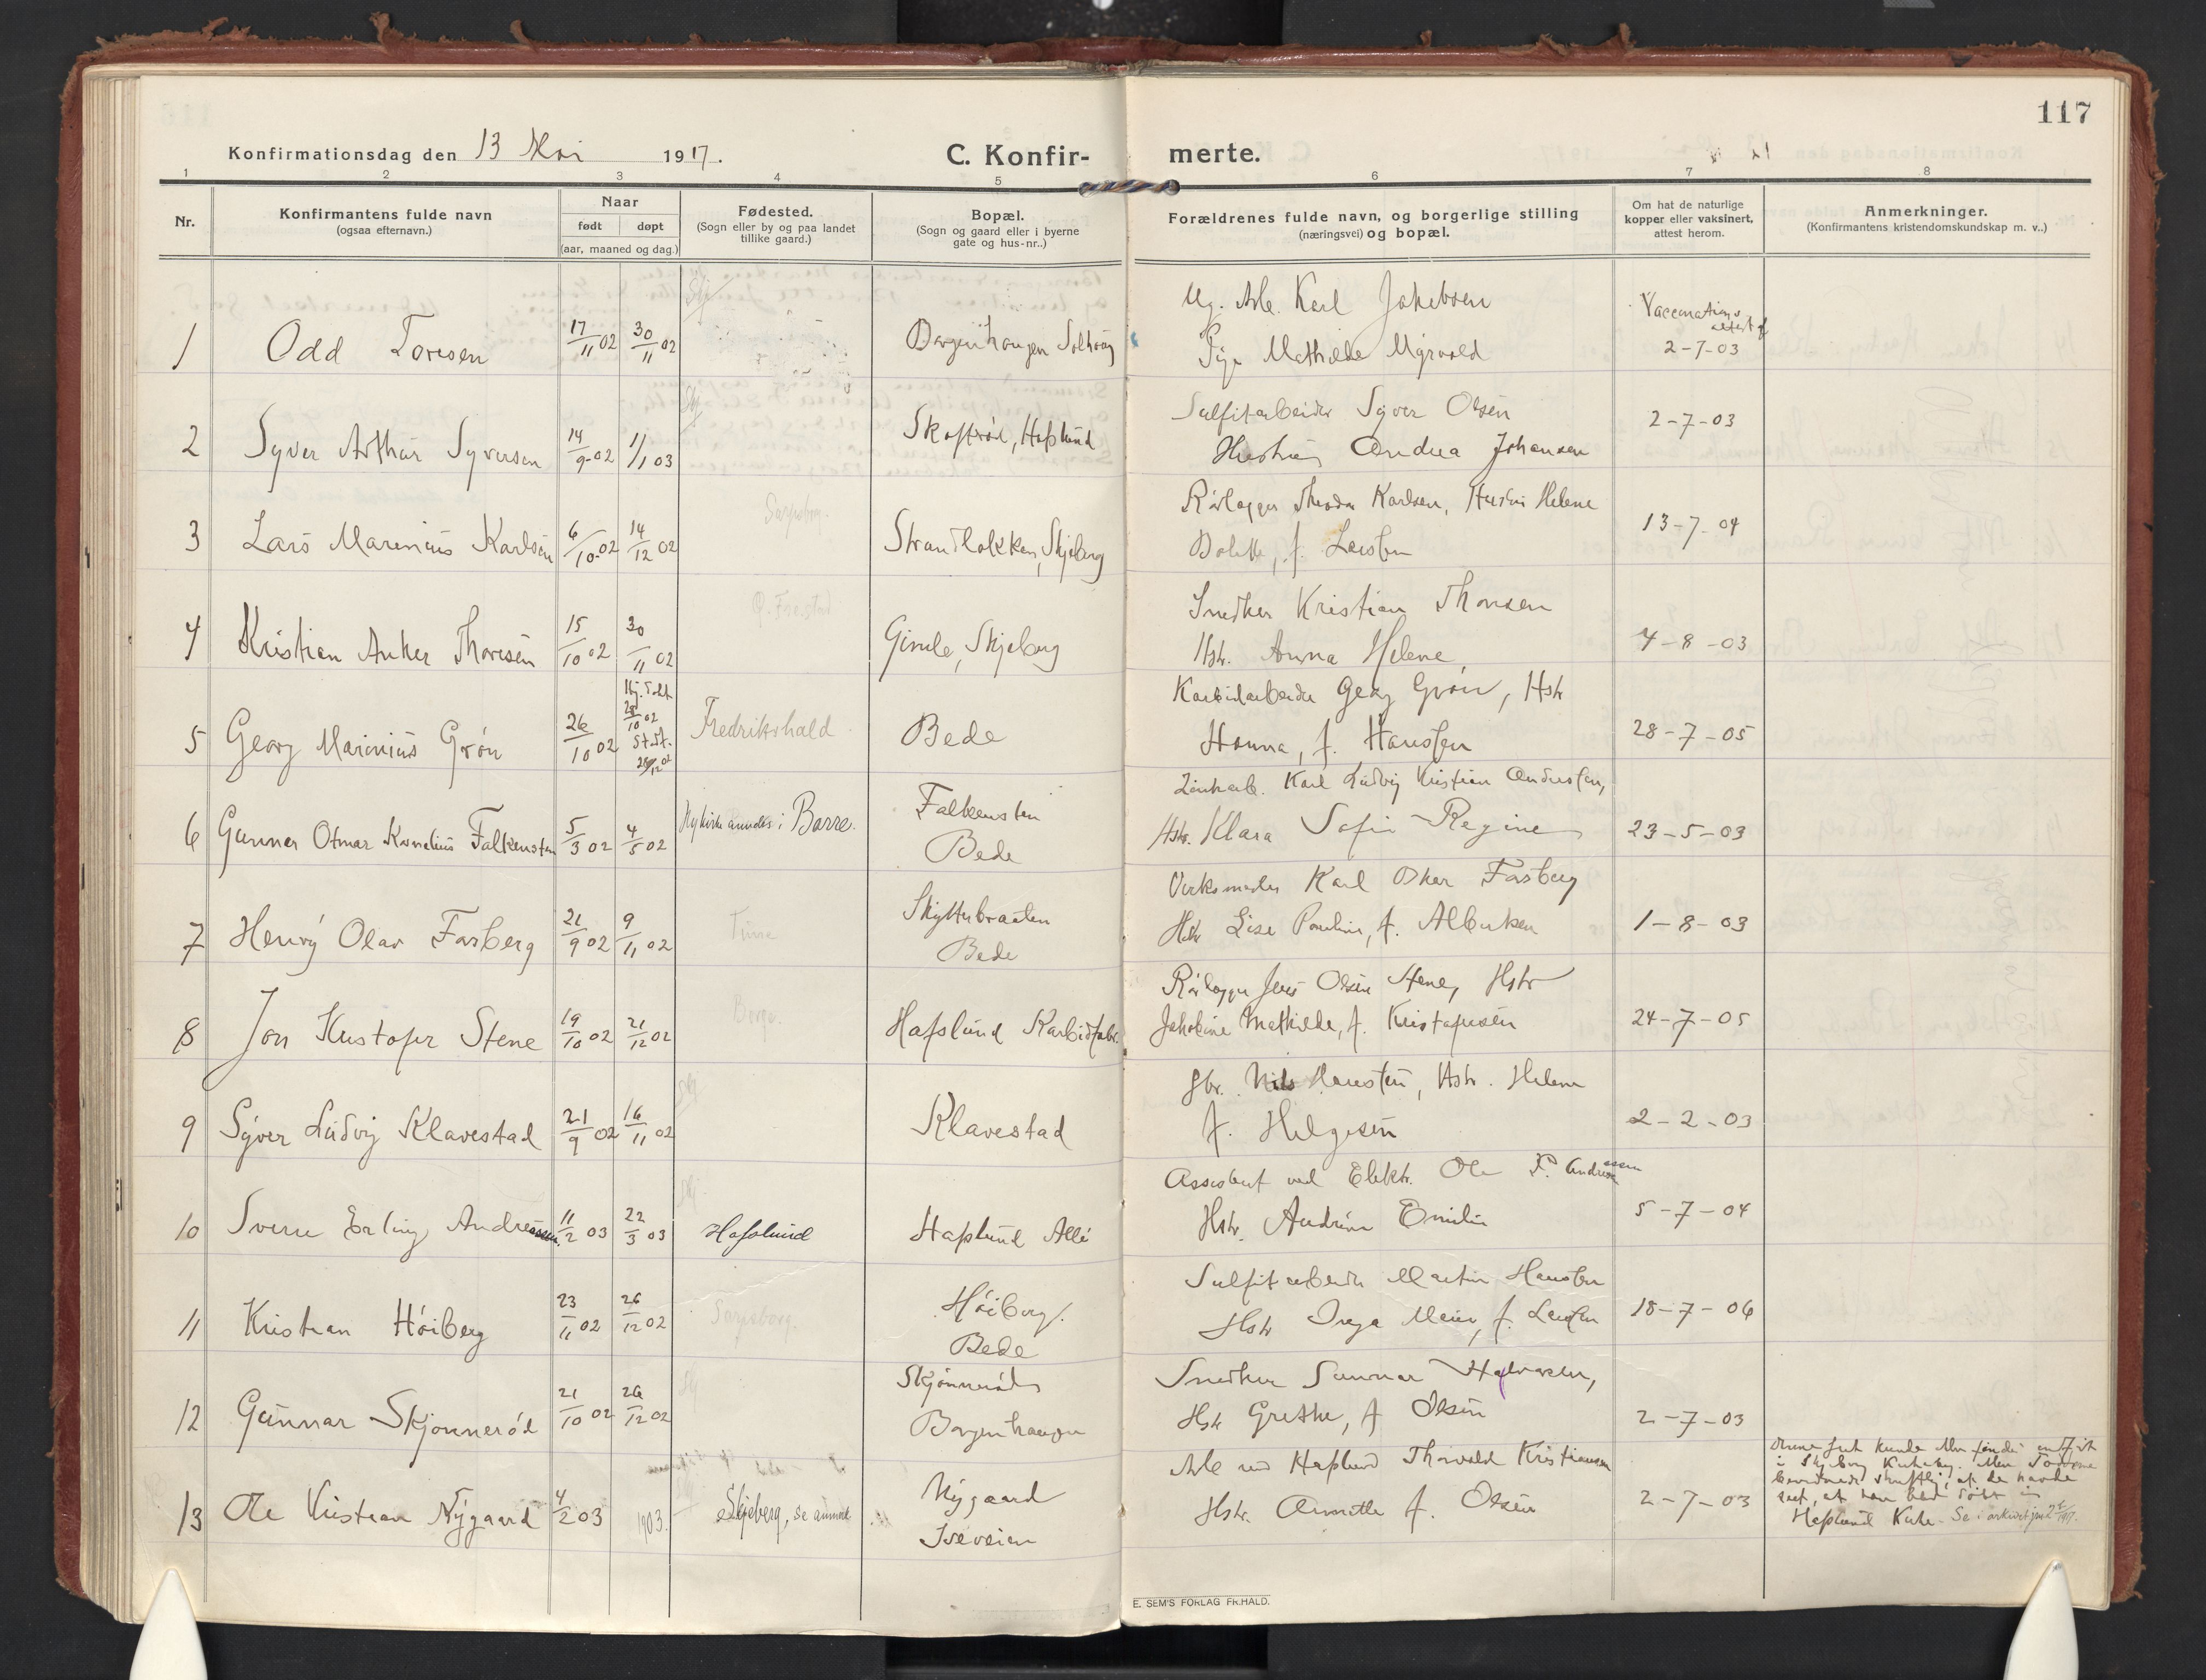 117
Konfirmationsdag den 13 Mai 1917.
C. Konfir-
merte.
1 2 3 4 5 6 7 8
Nr.
Konfirmantens fulde navn
(ogsaa efternavn.)
Naar
født døpt
(aar, maaned og dag.)
Fødested.
(Sogn eller by og paa landet
tillike gaard.)
Bopæl.
(Sogn og gaard eller i byerne
gate og hus-nr..)
Forældrenes fulde navn, og borgerlige stilling
(næringsvei) og bopæl.
Om hat de naturlige
kopper eller vaksinert,
attest herom.
Anmerkninger.
(Konfirmantens kristendomskundskap m. v..)
Skj
Ug. Arb. Karl Jakobsen
1 Odd Toresen 17/11 02 30/11 02 Borgenhaugen
Pige Mathilde
Vaccinations
attest af
2-7-03
Skj
Sulfitarbeider Syver Olsen
2 Syver Arthur Syversen 14/9-02 1/1 03 Skoftrød, Hafslund
Hustru Andrea Johansen
2-7-03
Sarpsborg.
Rørlægger Theodor Karlsen, Hustru Helene
3 Lars Marinius Karlsen 6/10-02 14/12 02 Strandløkken, Skjeberg
Bolette, f. Larsen
13-7-04
Ø. Fredrikstad
Snedker Kristian Thoresen
4 Kristian Anker Thoresen 15/10 02 30/11 02 Skjeberg
Hstr. Anna Helene
4-8-03
Hj. døbt
28/10 02
St. 26/12 02
Karbidarbeider Georg Grøn, Hstr
5 Georg Marinius Grøn 26/10 02 Fredrikshald Bede
Hanna, f. Hansen
28-7-05
Karl Ludvig Kristian Andersen,
6 Gunnar Otmar Kornelius Falkensten 5/3 02 4/5 02 Nykirke anneks i Borre. Falkensten
Bede
Hstr. Klara Sofie Regine
23-5-03
Verksmester Karl Oskar Fosberg
7 Henry Olav Fosberg 21/9 02 9/11 02 Tune Skytterbraaten
Bede
Hstr Lise Pauline, f. Albertsen
1-8-03
Rørlægger Jens Olsen Stene, Hstr
8 Jon Kristofer Stene 19/10 02 21/12 02 Borge. Hafslund Karbidfabr.
Jakobine Mathilde, f. Kristofersen
24-7-05
Skj
Gbr. Nils Hansen, Hstr. Helene
9 Syver Ludvig Klavestad 21/9 02 16/11 02 Klavestad
f. Helgesen
2-2-03
Skj.
Assistent ved Elektr. Ole P. Andreassen
10 Sverre Erling Andreassen. 11/2 03 22/3 03 Hafslund Hafslund Allé
Hstr. Andrine Emilie
5-7-04
Sulfitarbeider Martin Hansen
11 Kristian Høiberg 23/11 02 26/12 02 Sarpsborg. Høiberg.
Bede
Hstr Inga Marie, f. Larsen
18-7-06
Skj
Snedker Gunnar Halvorsen,
12 Gunnar Skjønnerød 21/10 02 26/12 02 Skjønnerød
Borgenhaugen
Hstr Grethe, f Olsen
2-7-03
Arb ved Hafslund Thorvald Kristiansen
13 Ole Kristian Nygaard 4/2 03 1903. Skjeberg, se anmerk. Nygaard
Iseveien
Hstr. Annette f. Olsen
2-7-03
kunde ikke findes indført
i Skjeberg Kirkebog. Men
skriftlig, at de havde
at han var døbt i
Hafslund Kirke. Se i arkivet
E. SEM'S FORLAG FR.HALD.